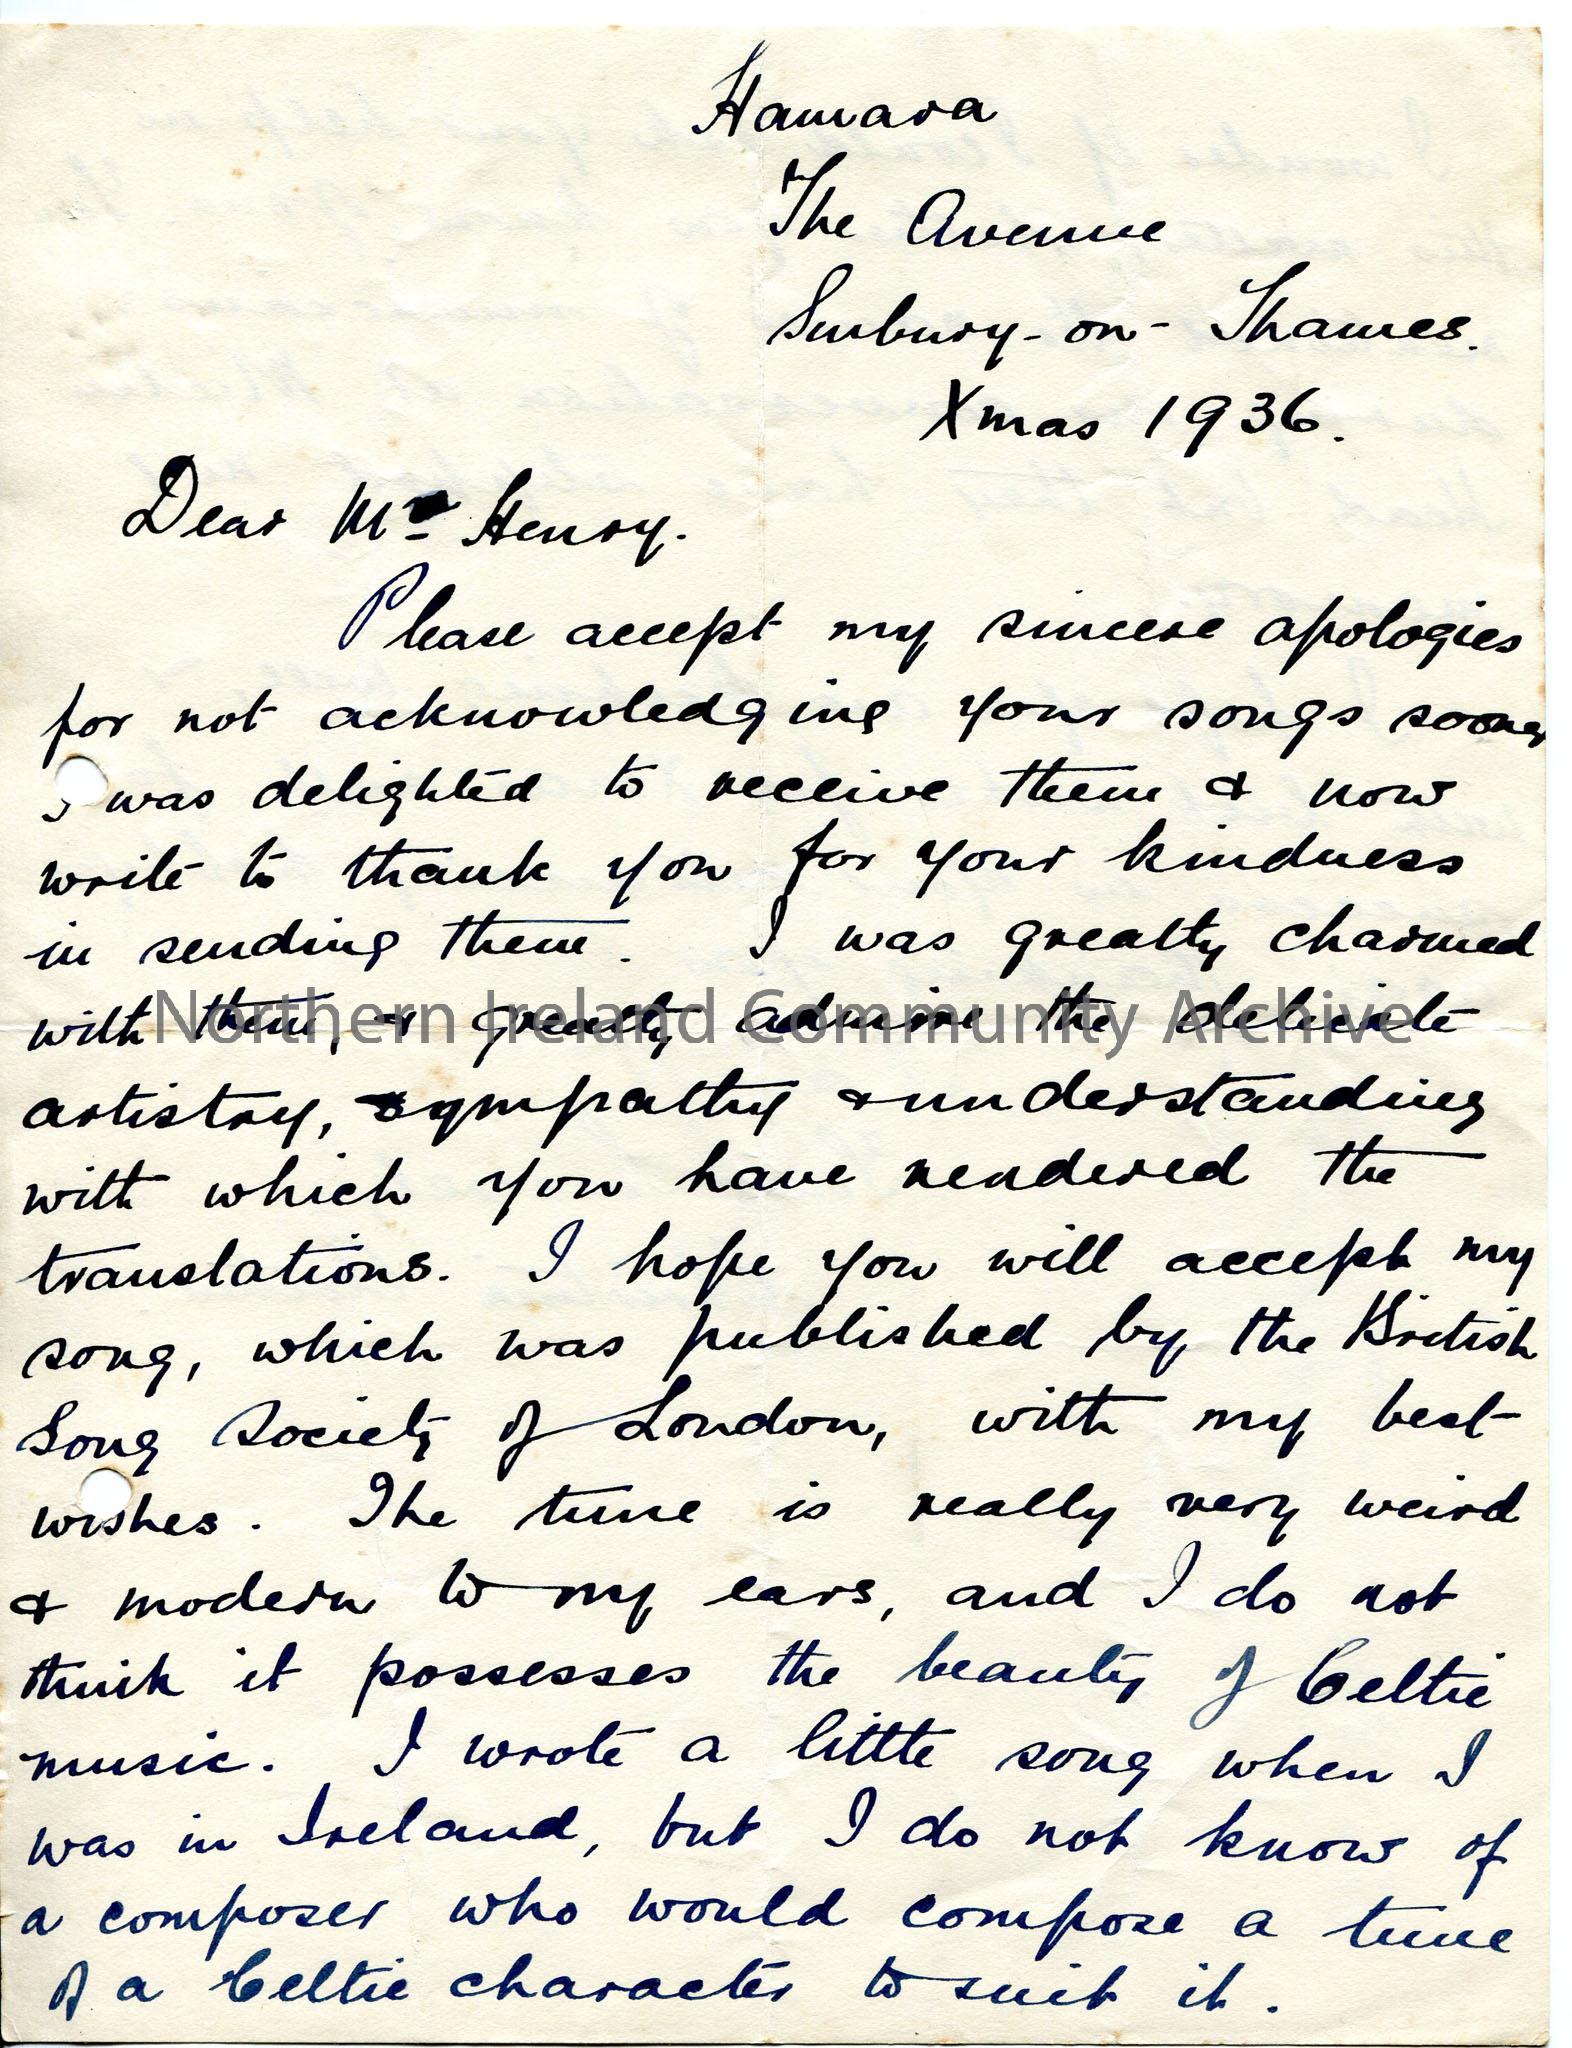 Hamara
The Avenue
Sunbury-on-Thames.
Xmas 1936.
Dear Mr Henry.
Please accept my sincere apologies
for not acknowledging your songs sooner
I was delighted to receive them & now
write to thank you for your kindness
in sending them. I was greatly charmed
with them, & greatly admire the delicate
Northern Ireland Community Archive
artistry, sympathy & understanding
with which you have rendered the
translations. I hope you will accept my
song, which was published by the British
Song Society of London, with my best
wishes. The tune is really very weird
& modern to my ears, and I do not
think it possesses the beauty of Celtic
music. I wrote a little song when I
was in Ireland, but I do not know of
a composer who would compose a tune
of a Celtic character to suit it.